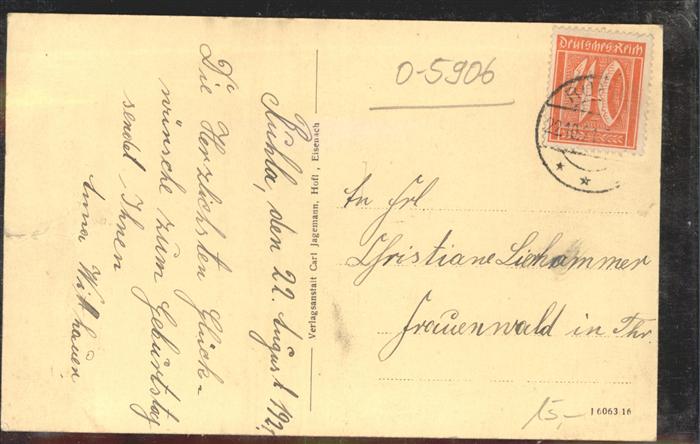 Ruhla, den 22. August 192
Die Herzlichsten Glück-
wünsche zum Geburtstag
sendet Ihnen
Anna
Verlagsanstalt Carl Jagemann, Hofl., Eisenach
O-5906
Deutsches Reich
40
An Frl
Christiane Liehammer
Frauenwald in Thr.
15,-
I 6063 16